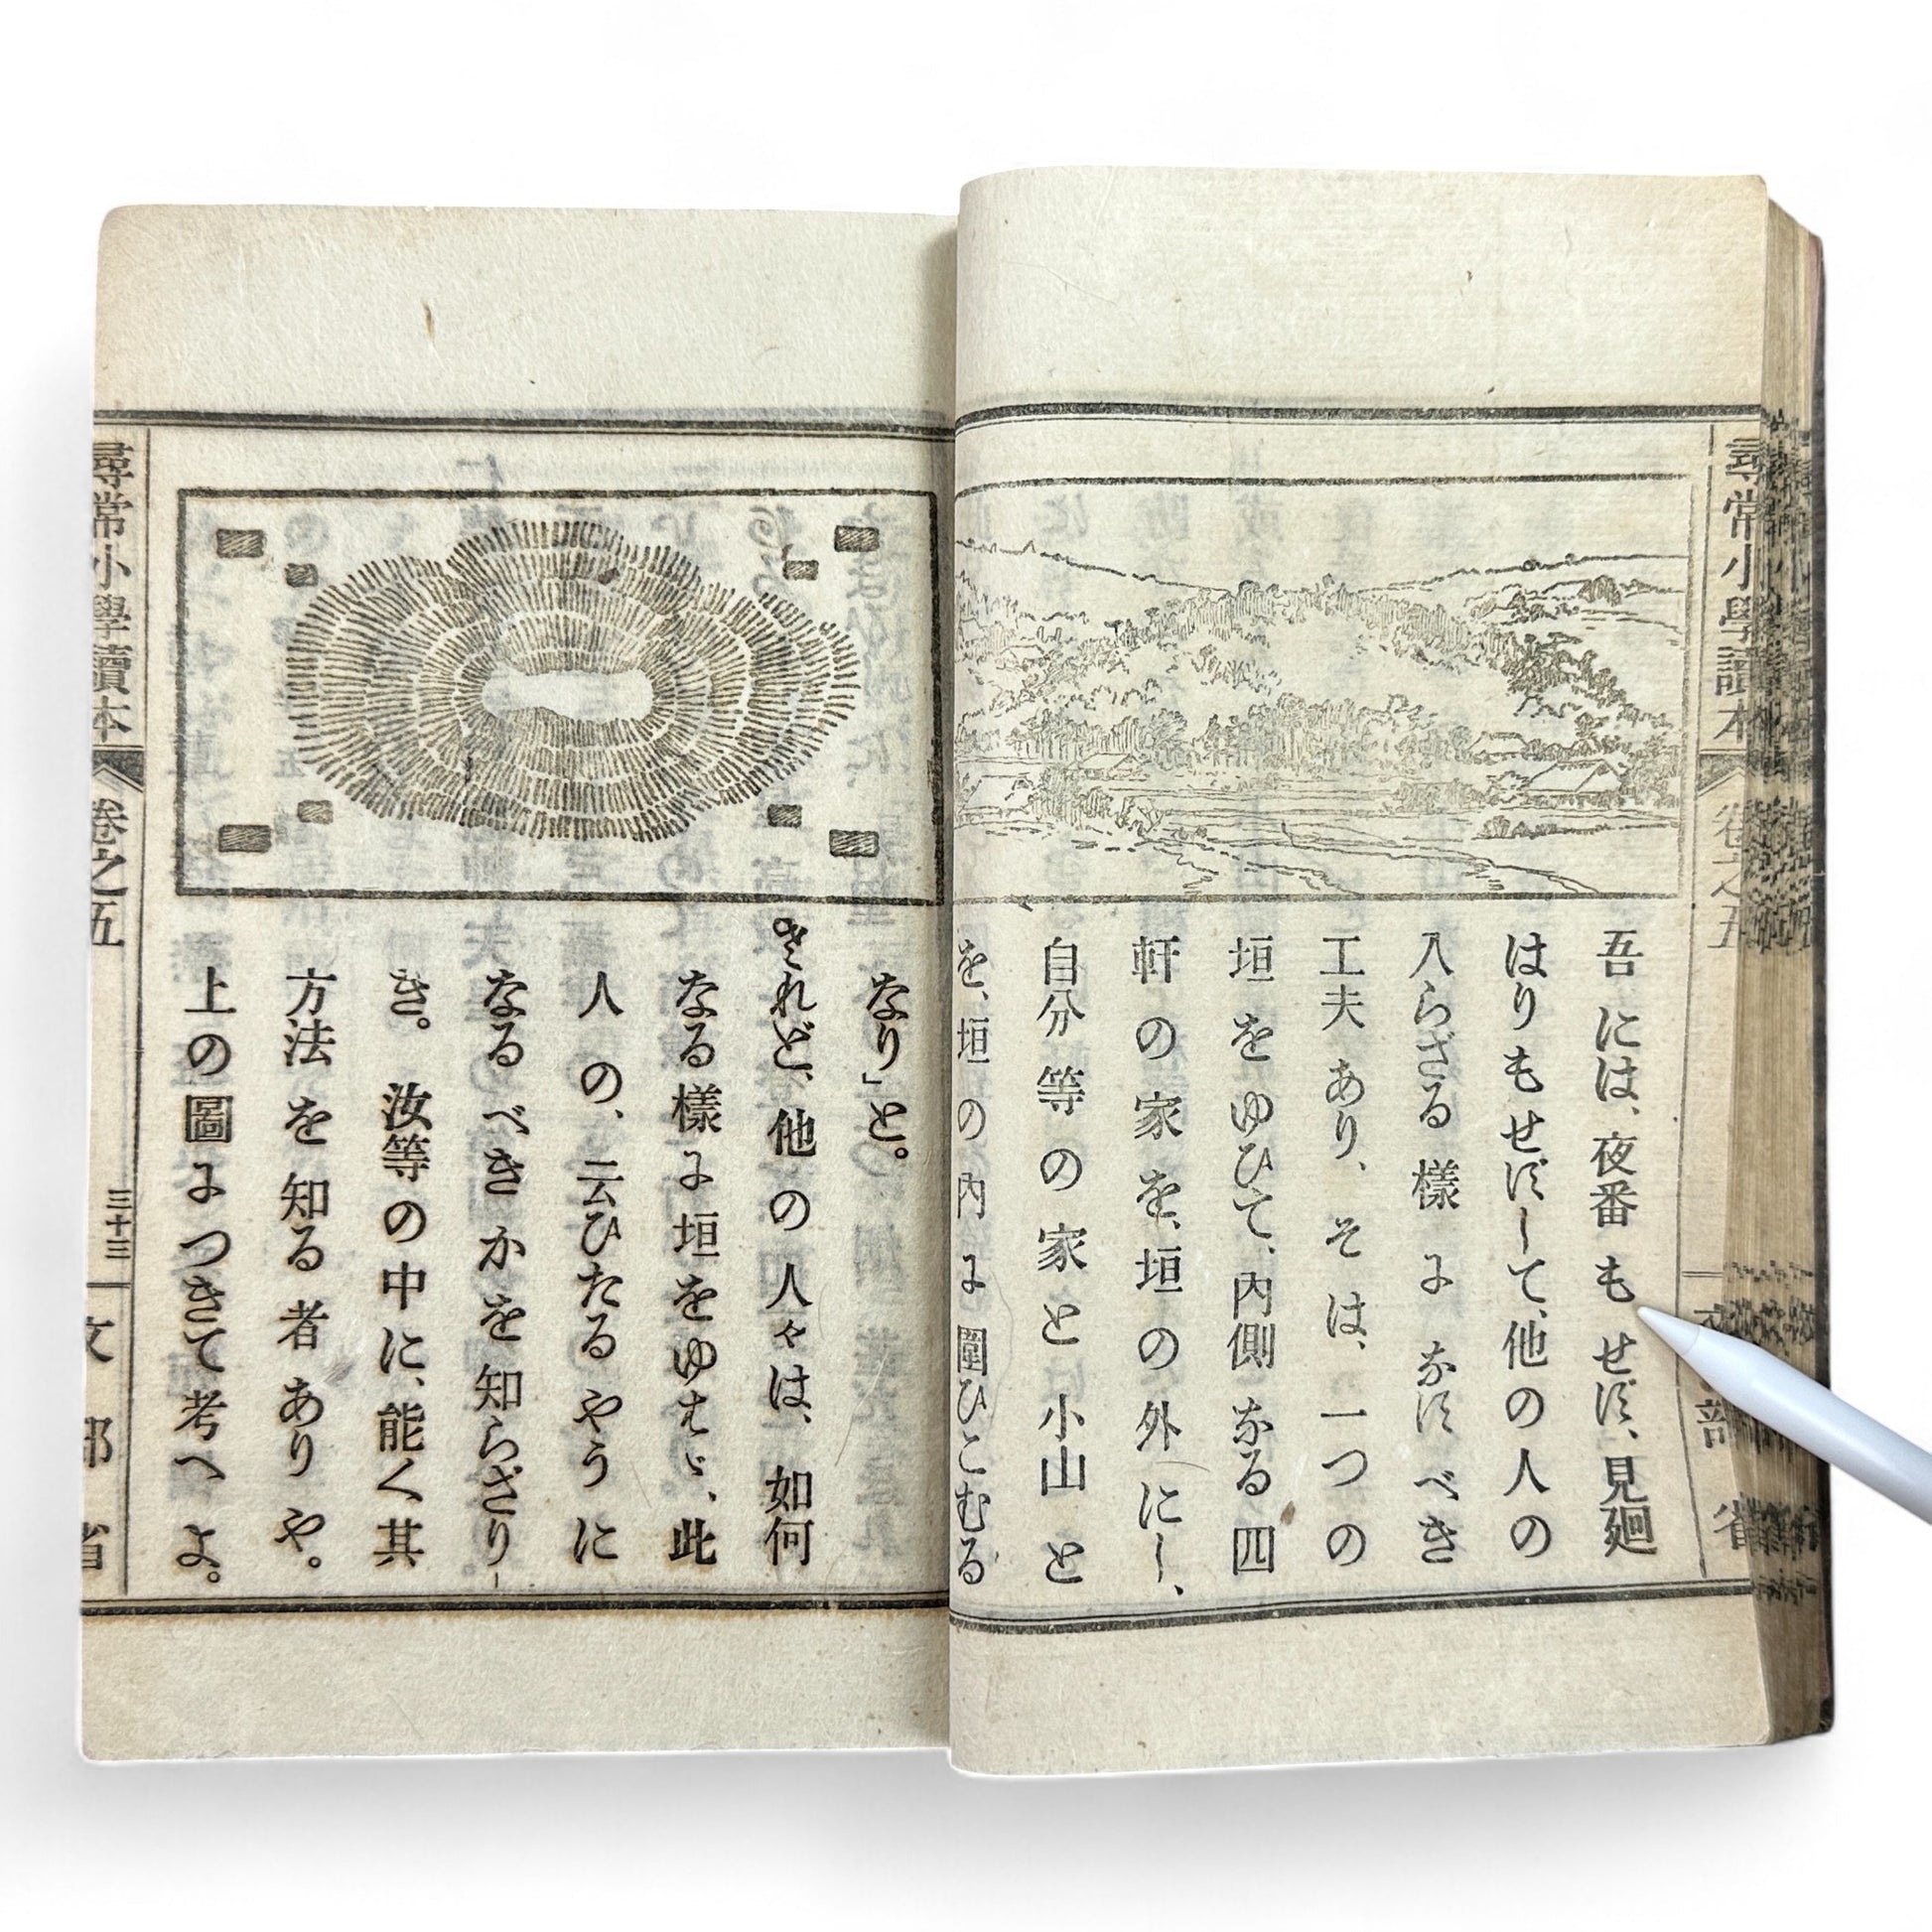 尋常小學讀本
卷之五
吾には、夜番もせず、見廻
はりもせずして、他の人の
入らざる樣になすべき
工夫あり、そは、一つの
垣をゆひて、内側なる四
軒の家を、垣の外にし、
自分等の家と小山と
を、垣の内に圍ひこむる
なり」と。
されど、他の人々は、如何
なる樣に垣をゆはゞ、此
人の、云ひたるやうに
なるべきかを知らざりし
き。汝等の中に、能く其
方法を知る者ありや。
上の圖につきて考へよ。
尋常小學讀本
卷之五
三十三
文部省